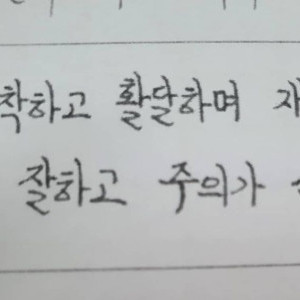 착하고 활달하며
잘하고 주의가